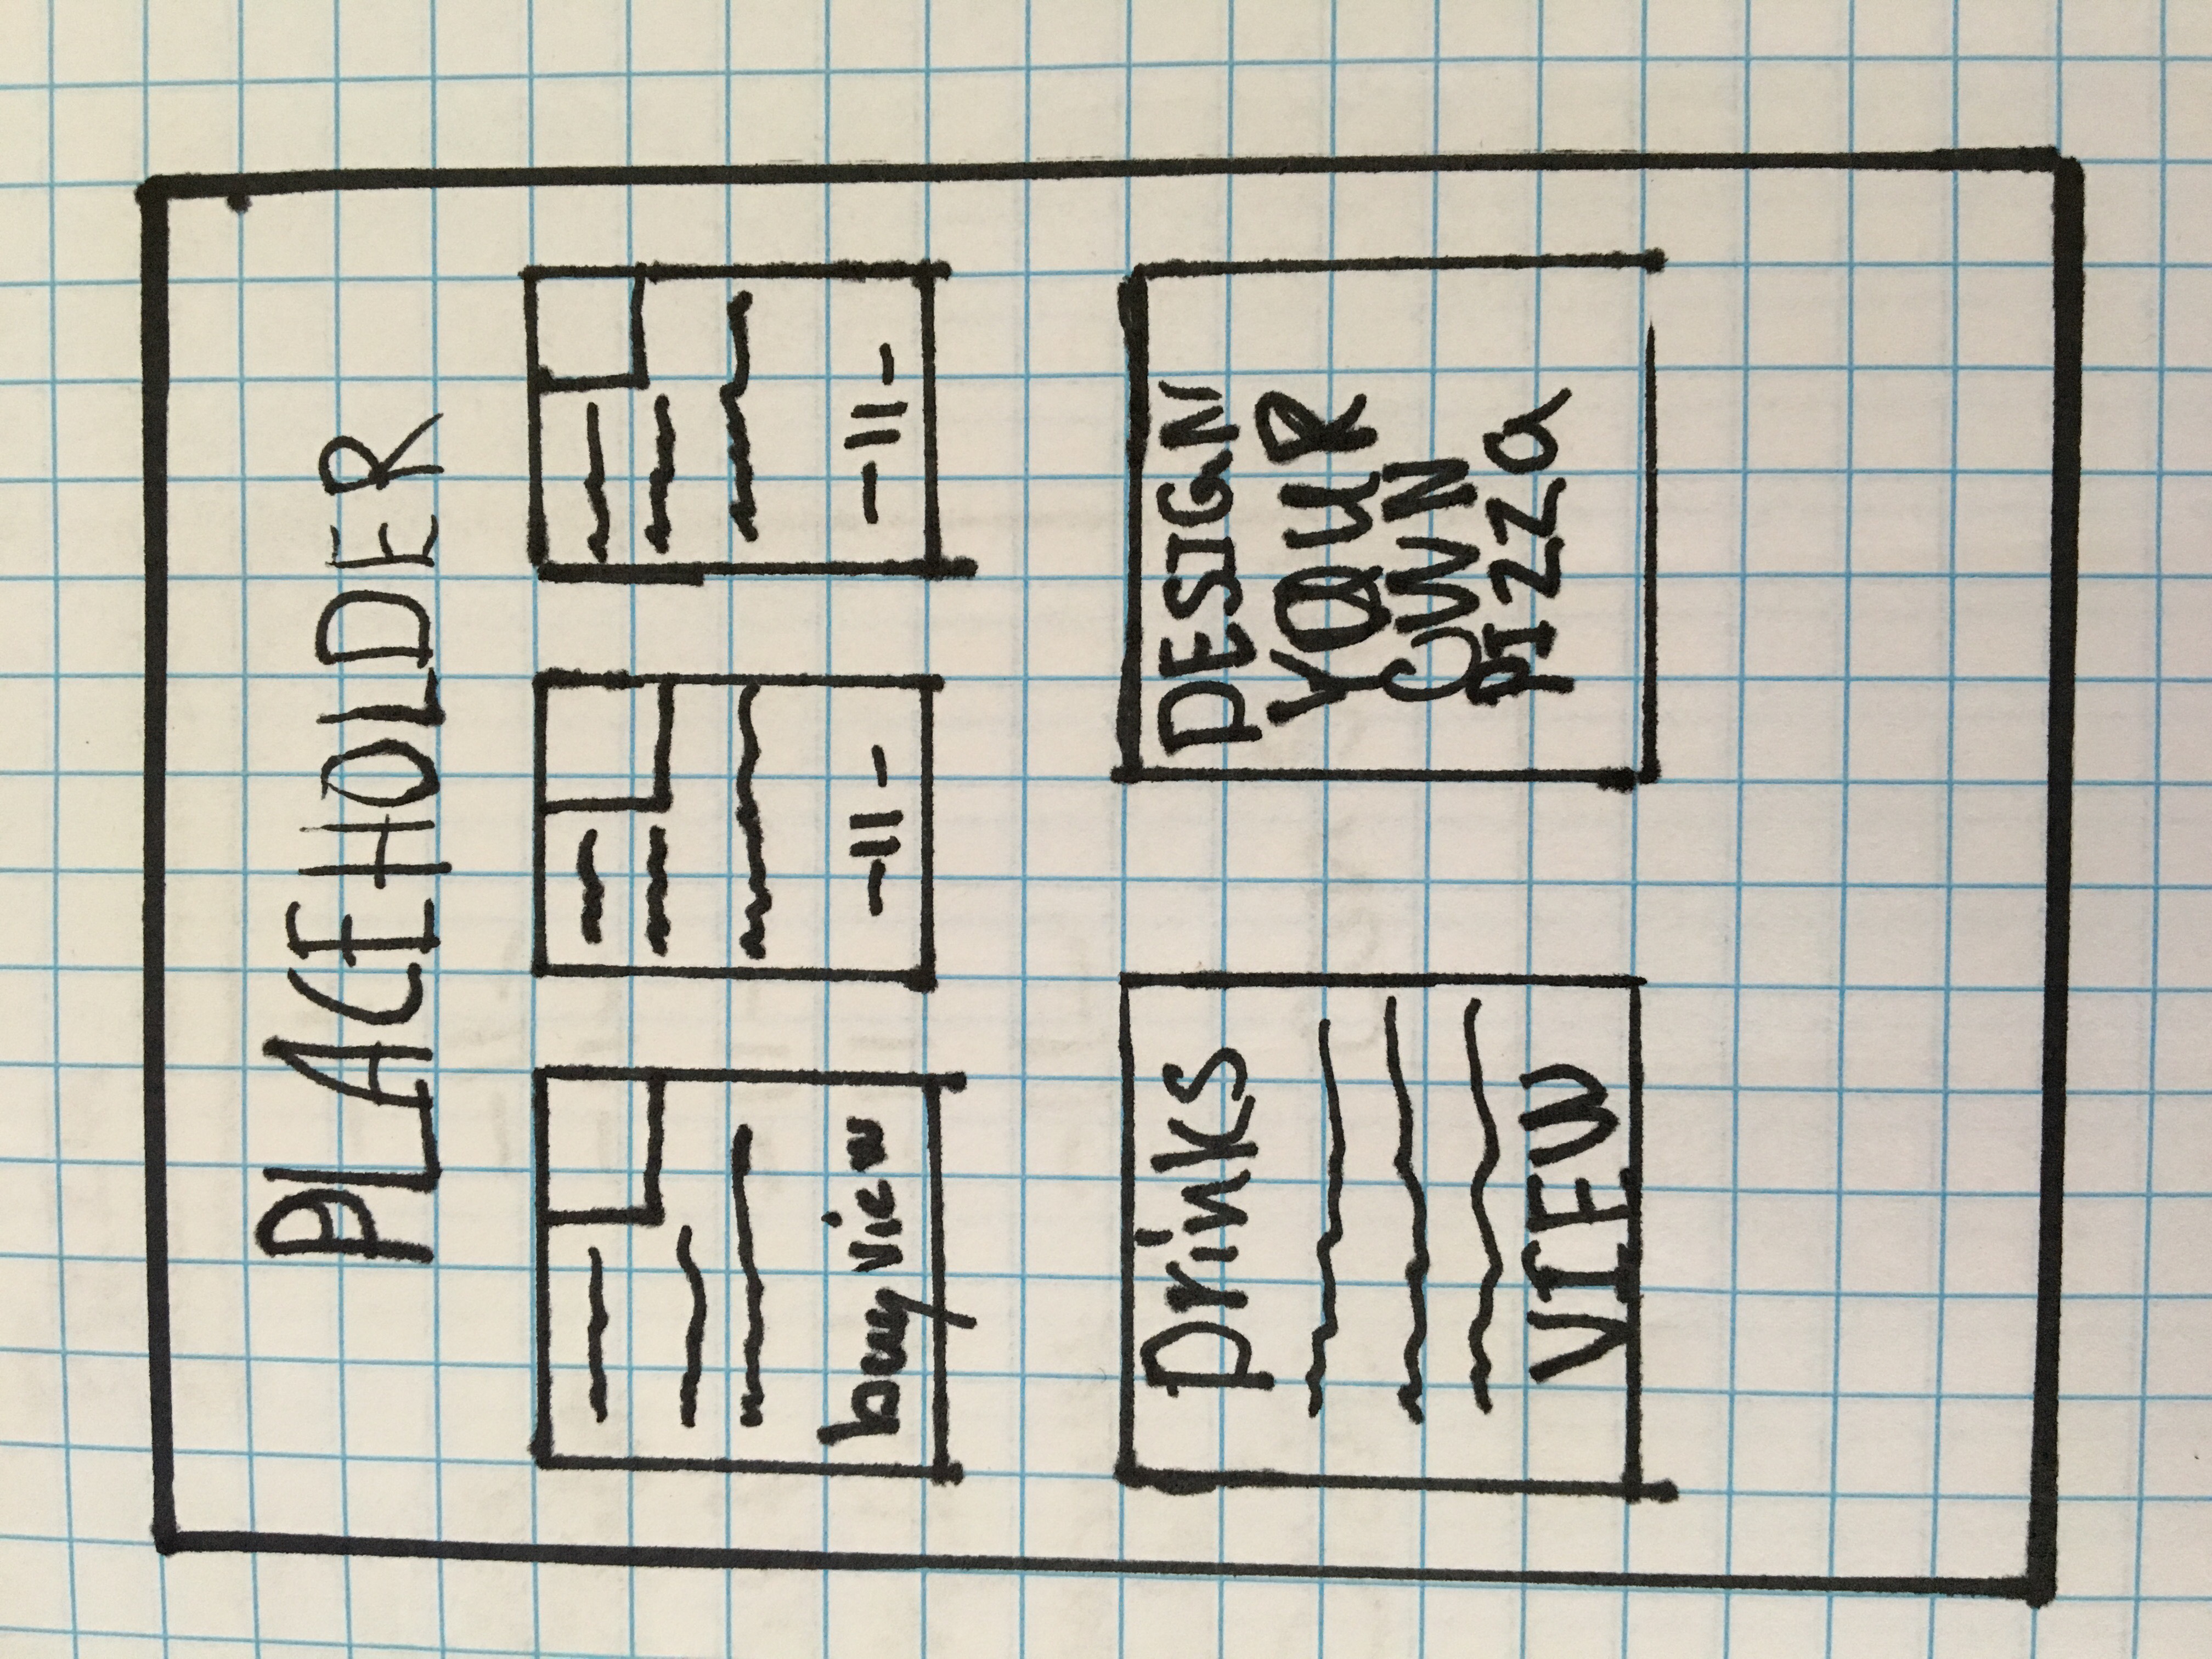 PLACEHOLDER
buy view
-11-
-11-
Drinks
VIEW
DESIGN
YOUR
OWN
PIZZA